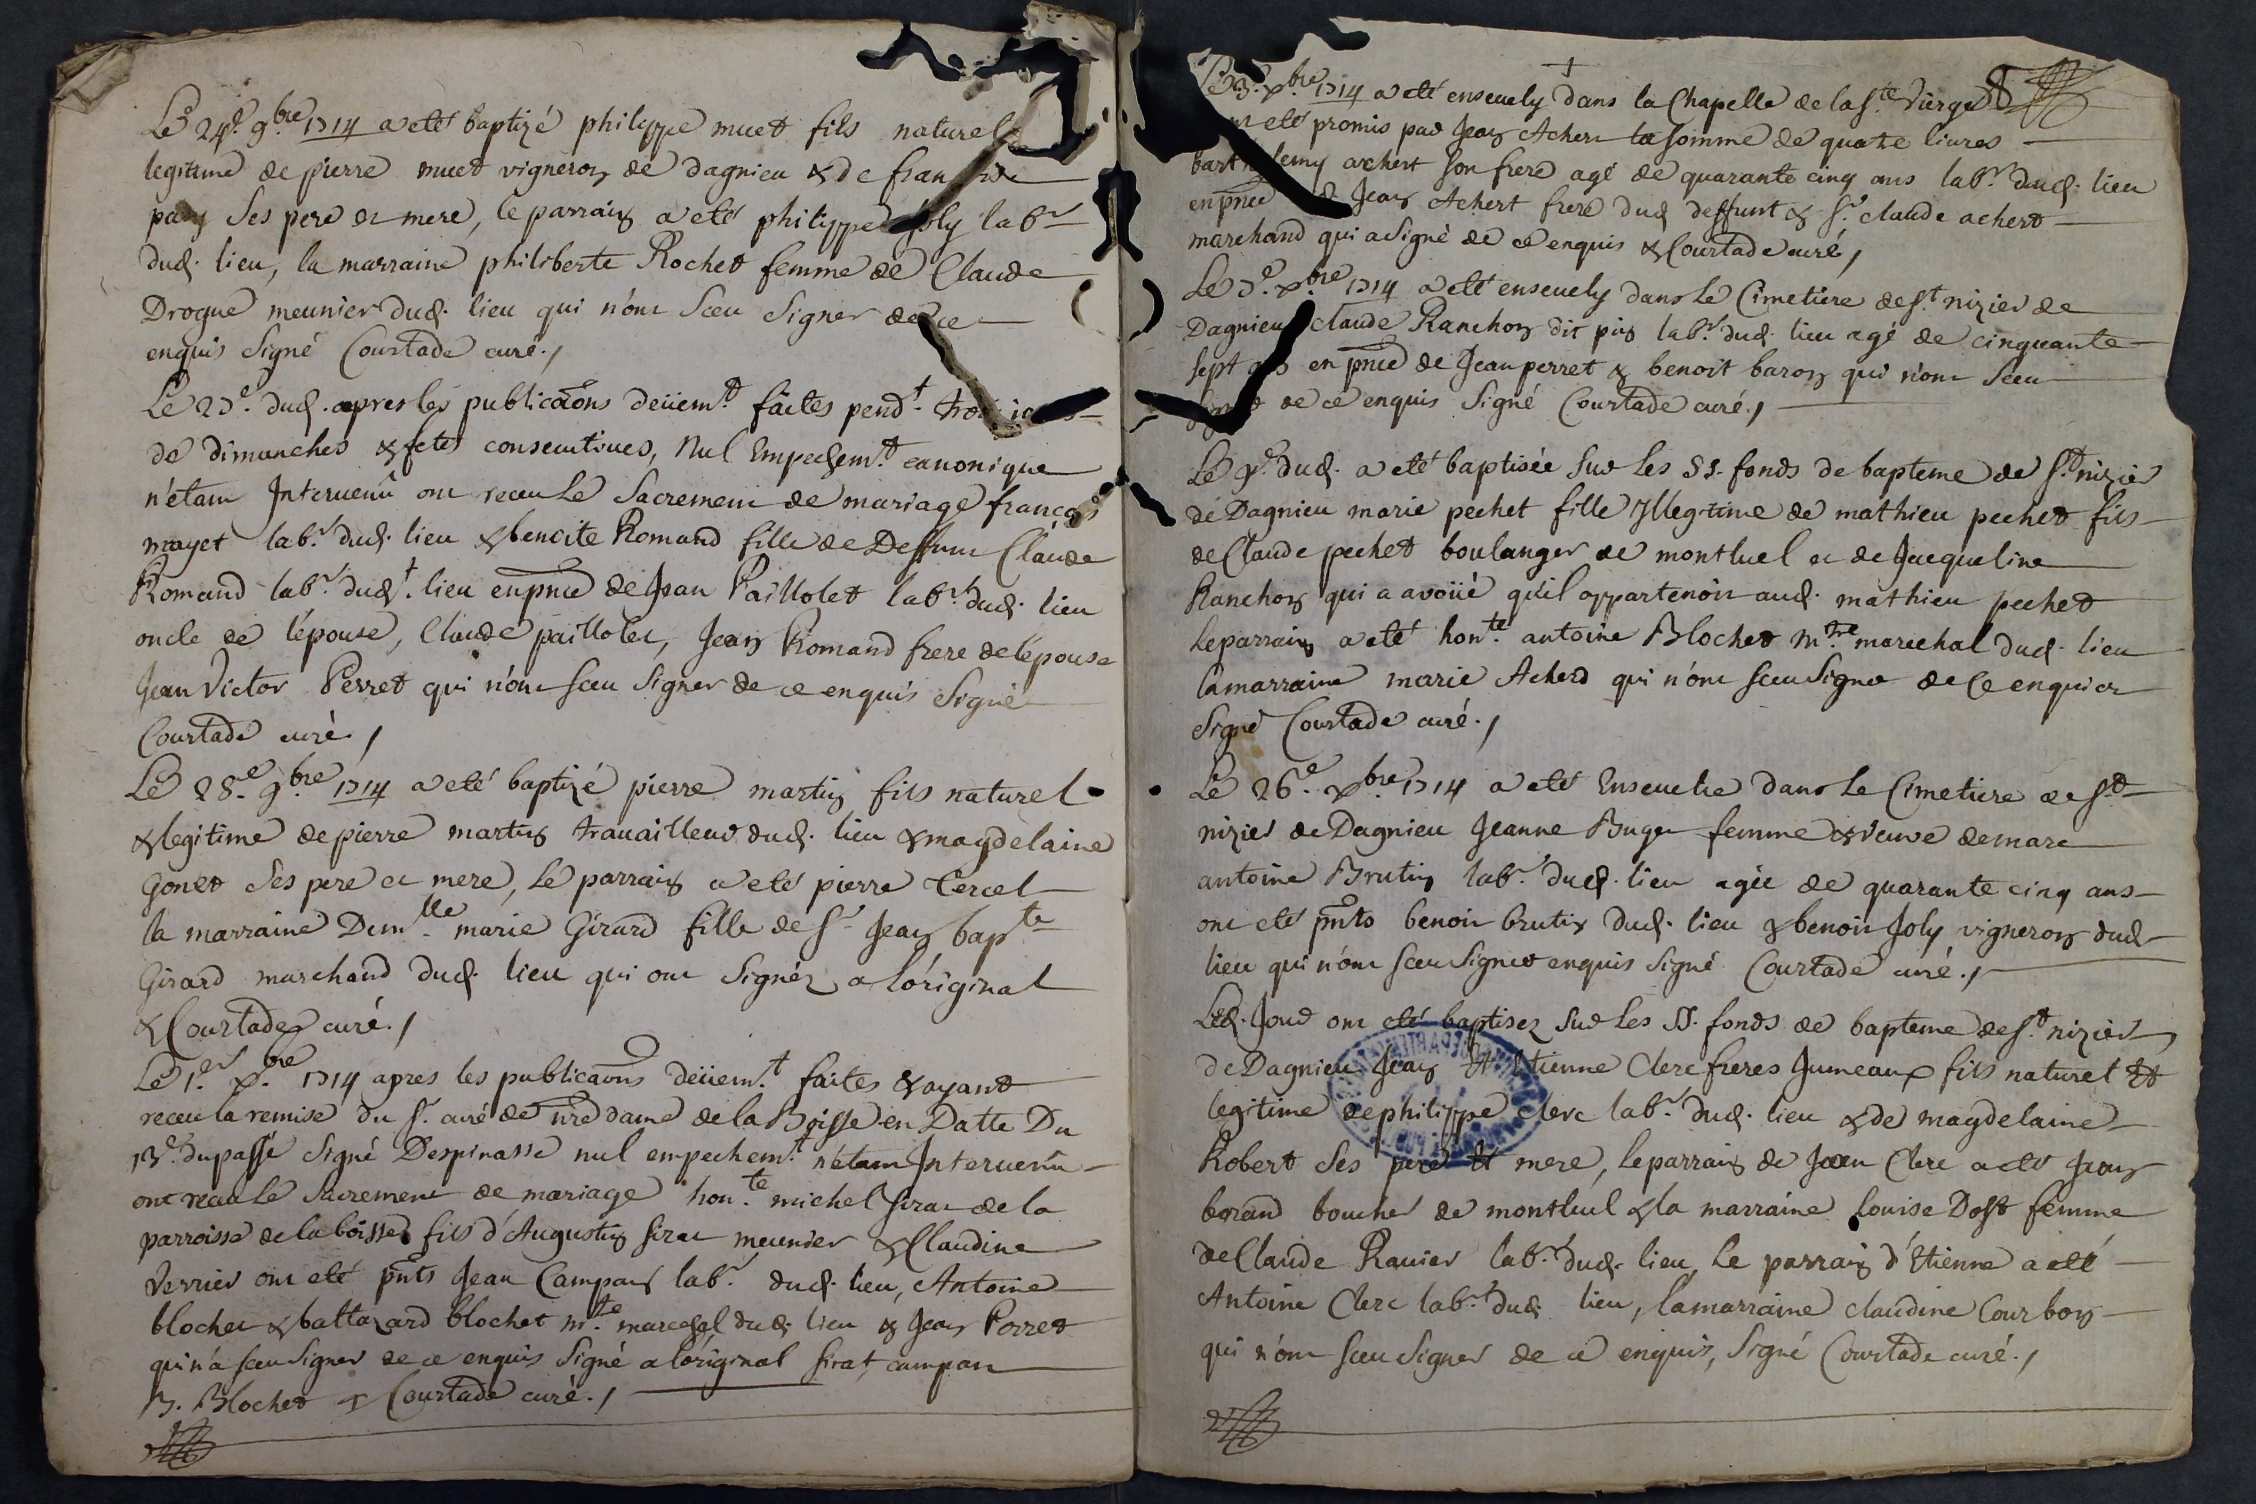 Le 24e. 9bre 1714 a eté baptizé philippe muet fils naturel
legitime de pierre muet vigneron de dagnieu & de
ses pere et mere, le parrain a eté philippe joly labr
dud. lieu, la marraine philiberte Rochet femme de Claude
Drogue meunier dud. lieu qui n'ont sceu signer de ce
enquis signé Courtade curé./
Le 25e. dud. apres les publicaõns deüemt. faites pendt.
de dimanches & fetes consecutives, Nul Empechemt. canonique
n'etant Intervenû ont receu le Sacrement de mariage françois
mayet labr. dud. lieu & benoite Romand fille de Deffunt Claude
Romand labr. dudt. lieu en pnce de Jean Paillolet labr. dud. lieu
oncle de l'épouse, Claude paillolet, Jean Romand frere de l'épouse
Jean Victor Perret qui n'ont sceu signer de ce enquis signé
Courtade curé./
Le 28e. 9bre 1714 a eté baptizé pierre martin fils naturel
& legitime de pierre martin travailleur dud. lieu & magdelaine
Gonet ses pere et mere, le parrain a eté pierre Tercel
la marraine Demlle. marie Girard fille de sr. Jean bapte
Girard marchand dud. lieu qui ont signéz a l'original
& Courtade curé./
Le 1er. Xbre 1714 apres les publicaõns deüemt. faites & ayant
receu la remise du sr. curé de nre dame de la Boisse en Datte Du
du passé signé Despinasse nul empechemt. n'étant Intervenû
ont receu le sacrement de mariage honte. michel sirat de la
parroisse de la boisse fils d'Augustin sirat meunier & Claudine
Verrier ont eté pnts Jean Campan labr. dud. lieu, Antoine
blochet & baltazard blochet mre. marechal dud. lieu & Jean Perret
qui n'a sceu signer de ce enquis signé a l'original sirat, campan
B. Blochet & Courtade curé./
Xbre 1714 a eté ensevely dans la Chapelle de la ste Vierge
eté promis par Jean Achert la somme de quatre livres
achert son frere agé de quarante cinq ans labr. dud. lieu
en pnce Jean Achert frere dud deffunt & sr. claude achert
marchand qui a signé de ce enquis & Courtade curé/
Le Xbre 1714 a eté ensevely dans le Cimetiere de st nizier de
Dagnieu claude Ranchon dit pin labr. dud. lieu agé de cinquante
sept ans en pnce de Jean perret & benoit baron qui n'ont sceu
signer de ce enquis signé Courtade curé./
Le 9e. dud. a eté baptisée sur les SS. fonds de bapteme de st. nizier
de Dagnieu marie pechet fille Illegitime de mathieu pechet fils
de Claude pechet boulanger de montluel et de Jacqueline
Ranchon qui a avoüé qu'il appartenoit aud. mathieu pechet
le parrain a eté honte. antoine Blochet mtre marechal dud. lieu
la marraine marie Acherd qui n'ont sceu signer de ce enquis
signé Courtade curé./
Le 26e. Xbre 1714 a eté Ensevelie dans le Cimetiere de st
nizier de Dagnieu Jeanne Buget femme & veuve de marc
antoine Brutin labr. dud. lieu agée de quarante cinq ans
ont eté pnts benoit brutin dud. lieu & benoit Joly vigneron dud
lieu qui n'ont sceu signer enquis signé Courtade curé./
Led. Jour ont eté baptisez sur les SS. fonds de bapteme de st nizier
de Dagnieu Jean et Etienne Clerc freres Jumeaux fils naturel et
legitime de philippe clerc labr. dud. lieu & de magdelaine
Robert ses pere et mere, le parrain de Jean Clerc a eté Jean
borand boucher de montluel & la marraine Louise Dost femme
de Claude Ravier labr. dud. lieu, Le parrain d'Etienne a eté
Antoine Clerc labr. dud. lieu, la marraine claudine Courbon
qui n'ont sceu signer de ce enquis, signé Courtade curé./